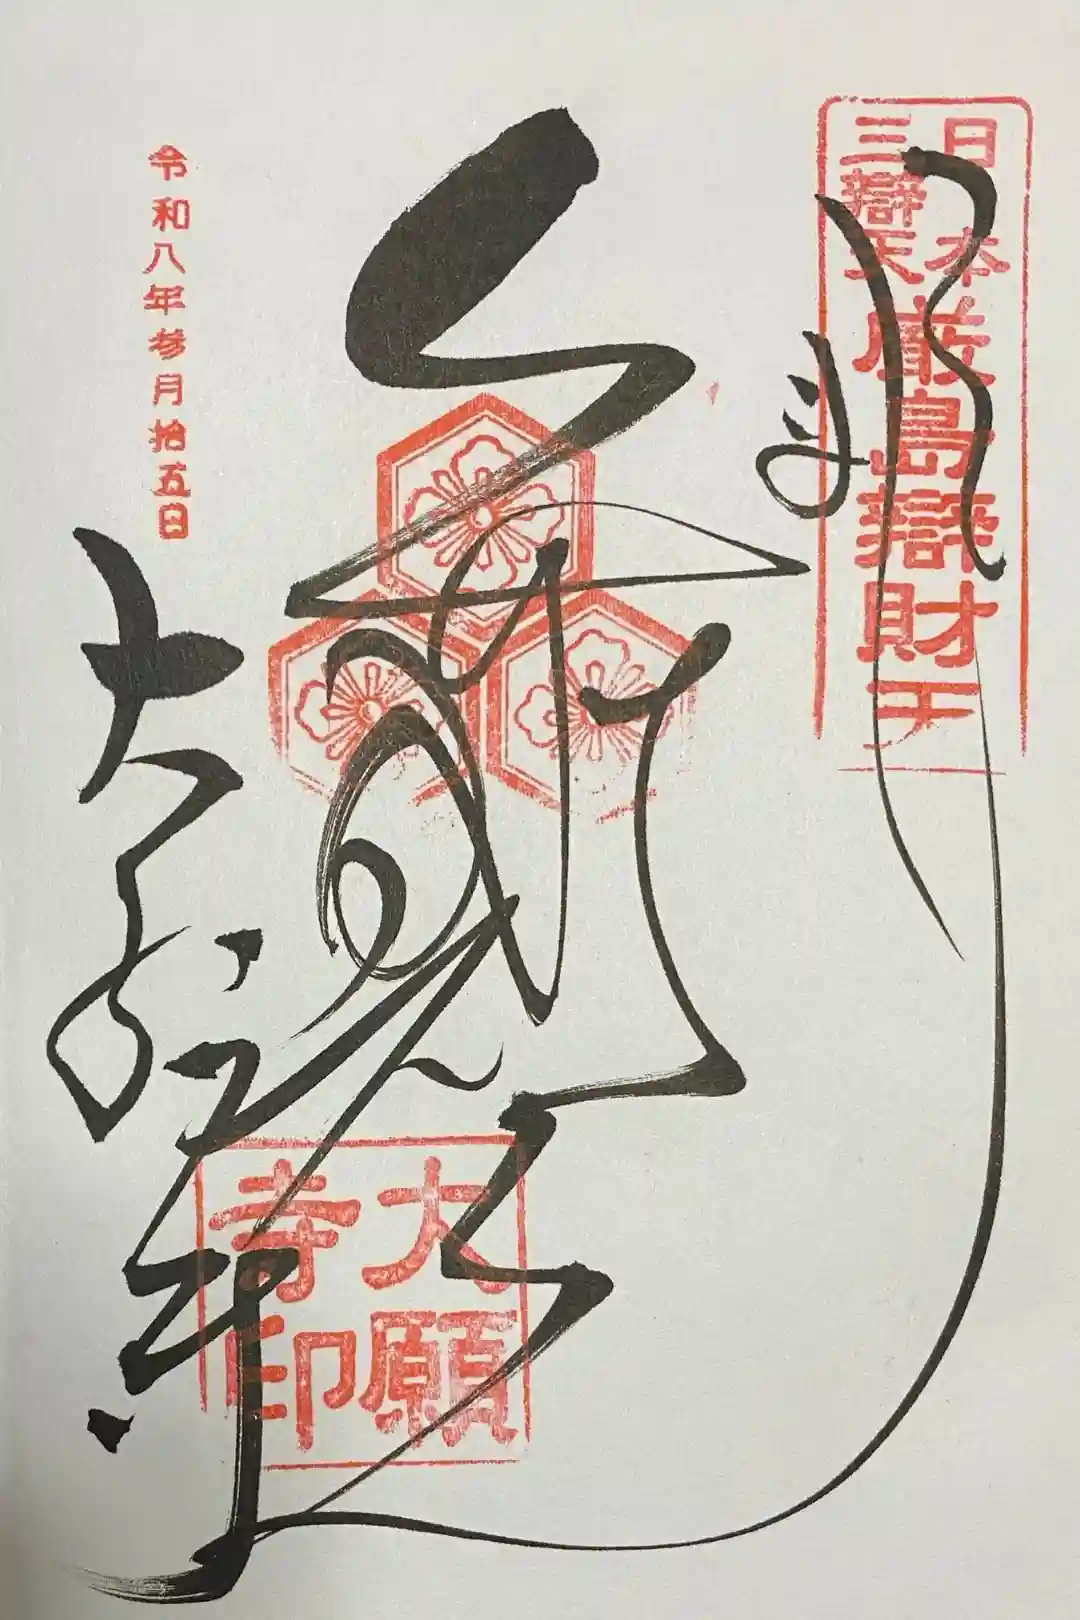 日本
三辯天
厳島辯財天
奉拝
大願寺
大願
寺印
令和八年参月拾五日